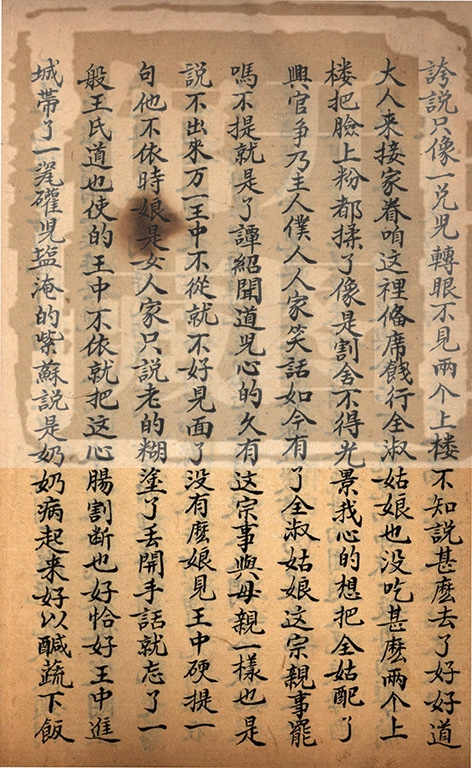 誇說只像一兑児轉眼不見兩个上楼不知說甚麽去了好好道
大人来接家眷咱這裡俻席餞行全淑姑娘也没吃甚麽兩个上
楼把臉上粉都揉了像是割舍不得光景我心的想把全姑配了
興官争乃主人僕人人家笑話如今有了全淑姑娘這宗親事罷
嗎不提就是了譚紹聞道児心的久有这宗事與母親一樣也是
說不出來万一王中不從就不好見面了没有麽娘見王中硬提一
句他不依時娘是女人家只說老的糊塗了丢開手話就忘了一
般王氏道也使的王中不依就把这心腸割断也好恰好王中進
城帶了一瓷礶児塩淹的紫蘇說是奶奶病起来好以鹹蔬下飯